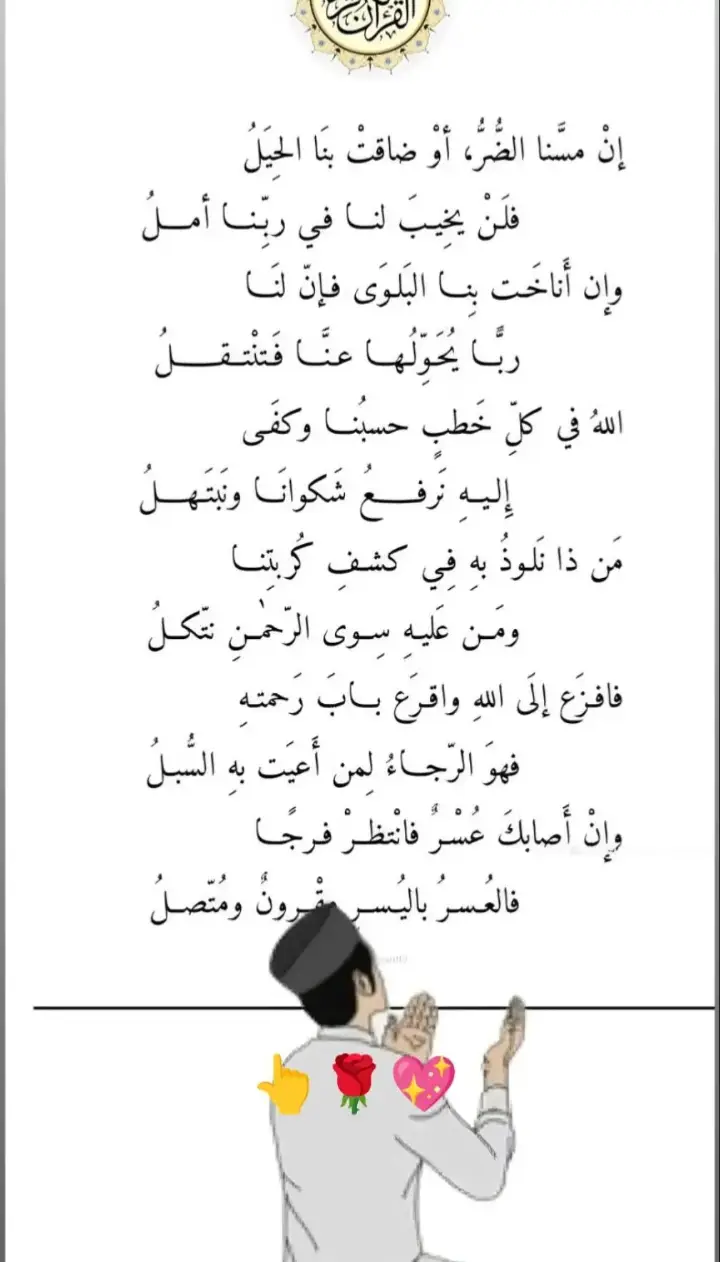 القرآن
إنْ مسَّنا الضُّرُّ، أوْ ضاقتْ بنَا الحِيَلُ
فلَنْ يخِيبَ لنا في ربِّنا أملُ
وإن أَناخَت بِنا البَلوَى فإنّ لنَا
ربًّا يُحَوِّلُها عنَّا فَتنْتقلُ
اللهُ في كلِّ خَطبٍ حسبُنا وكفَى
إِليهِ نَرفعُ شَكوانَا ونَبتَهلُ
مَن ذا نَلوذُ بهِ فِي كشفِ كُربتِنا
ومَن عَليهِ سِوى الرّحمٰنِ نتّكلُ
فافزَع إلَى اللهِ واقرَع بابَ رَحمتهِ
فهوَ الرّجاءُ لِمن أَعيَت بهِ السُّبلُ
وإنْ أَصابكَ عُسْرٌ فانْتظرْ فرجًا
فالعُسرُ باليُسرِ مقْرونٌ ومُتّصلُ